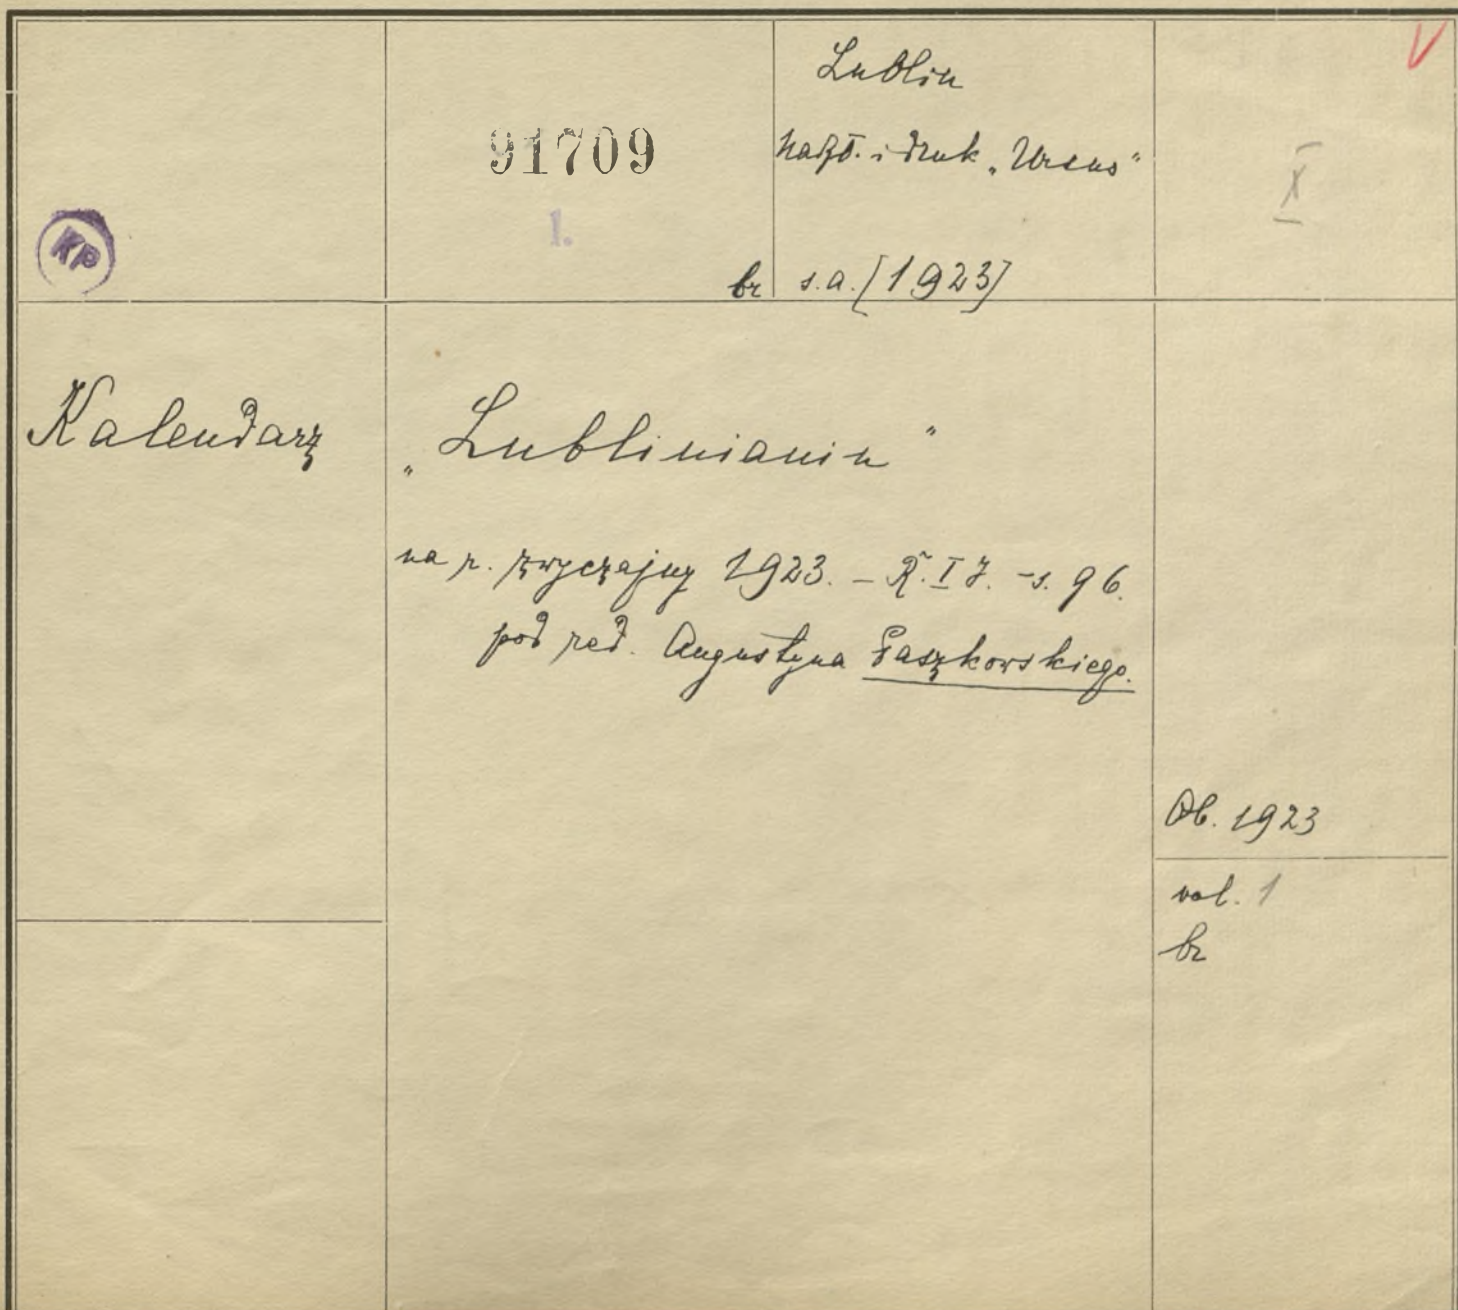 V
Lublin
91709
Nakł. i druk „Ursus"
X
1.
KP
br s.a. [1923]
Kalendarz
„Lublinianin"
na r. zwyczajny 1923. – R. I – s. 96.
pod red. Augustyna Paszkowskiego.
Ob. 1923
vol. 1
br